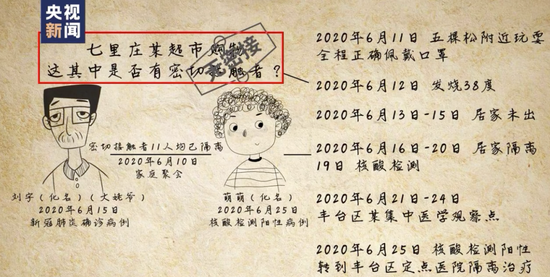 央视
新闻
七里庄某超市购物
这其中是否有密切接触者？
无密接
密切接触者11人均已隔离
2020年6月10日
家庭聚会
刘宇（化名）（大姚爷）
2020年6月15日
新冠肺炎确诊病例
萌萌（化名）
2020年6月25日
核酸检测阳性病例
2020年6月11日 五棵松附近玩耍
全程正确佩戴口罩
2020年6月12日 发烧38度
2020年6月13日-15日 居家未出
2020年6月16日-20日 居家隔离
19日 核酸检测
2020年6月21日-24日
丰台区某集中医学观察点
2020年6月25日 核酸检测阳性
转到丰台区定点医院隔离治疗